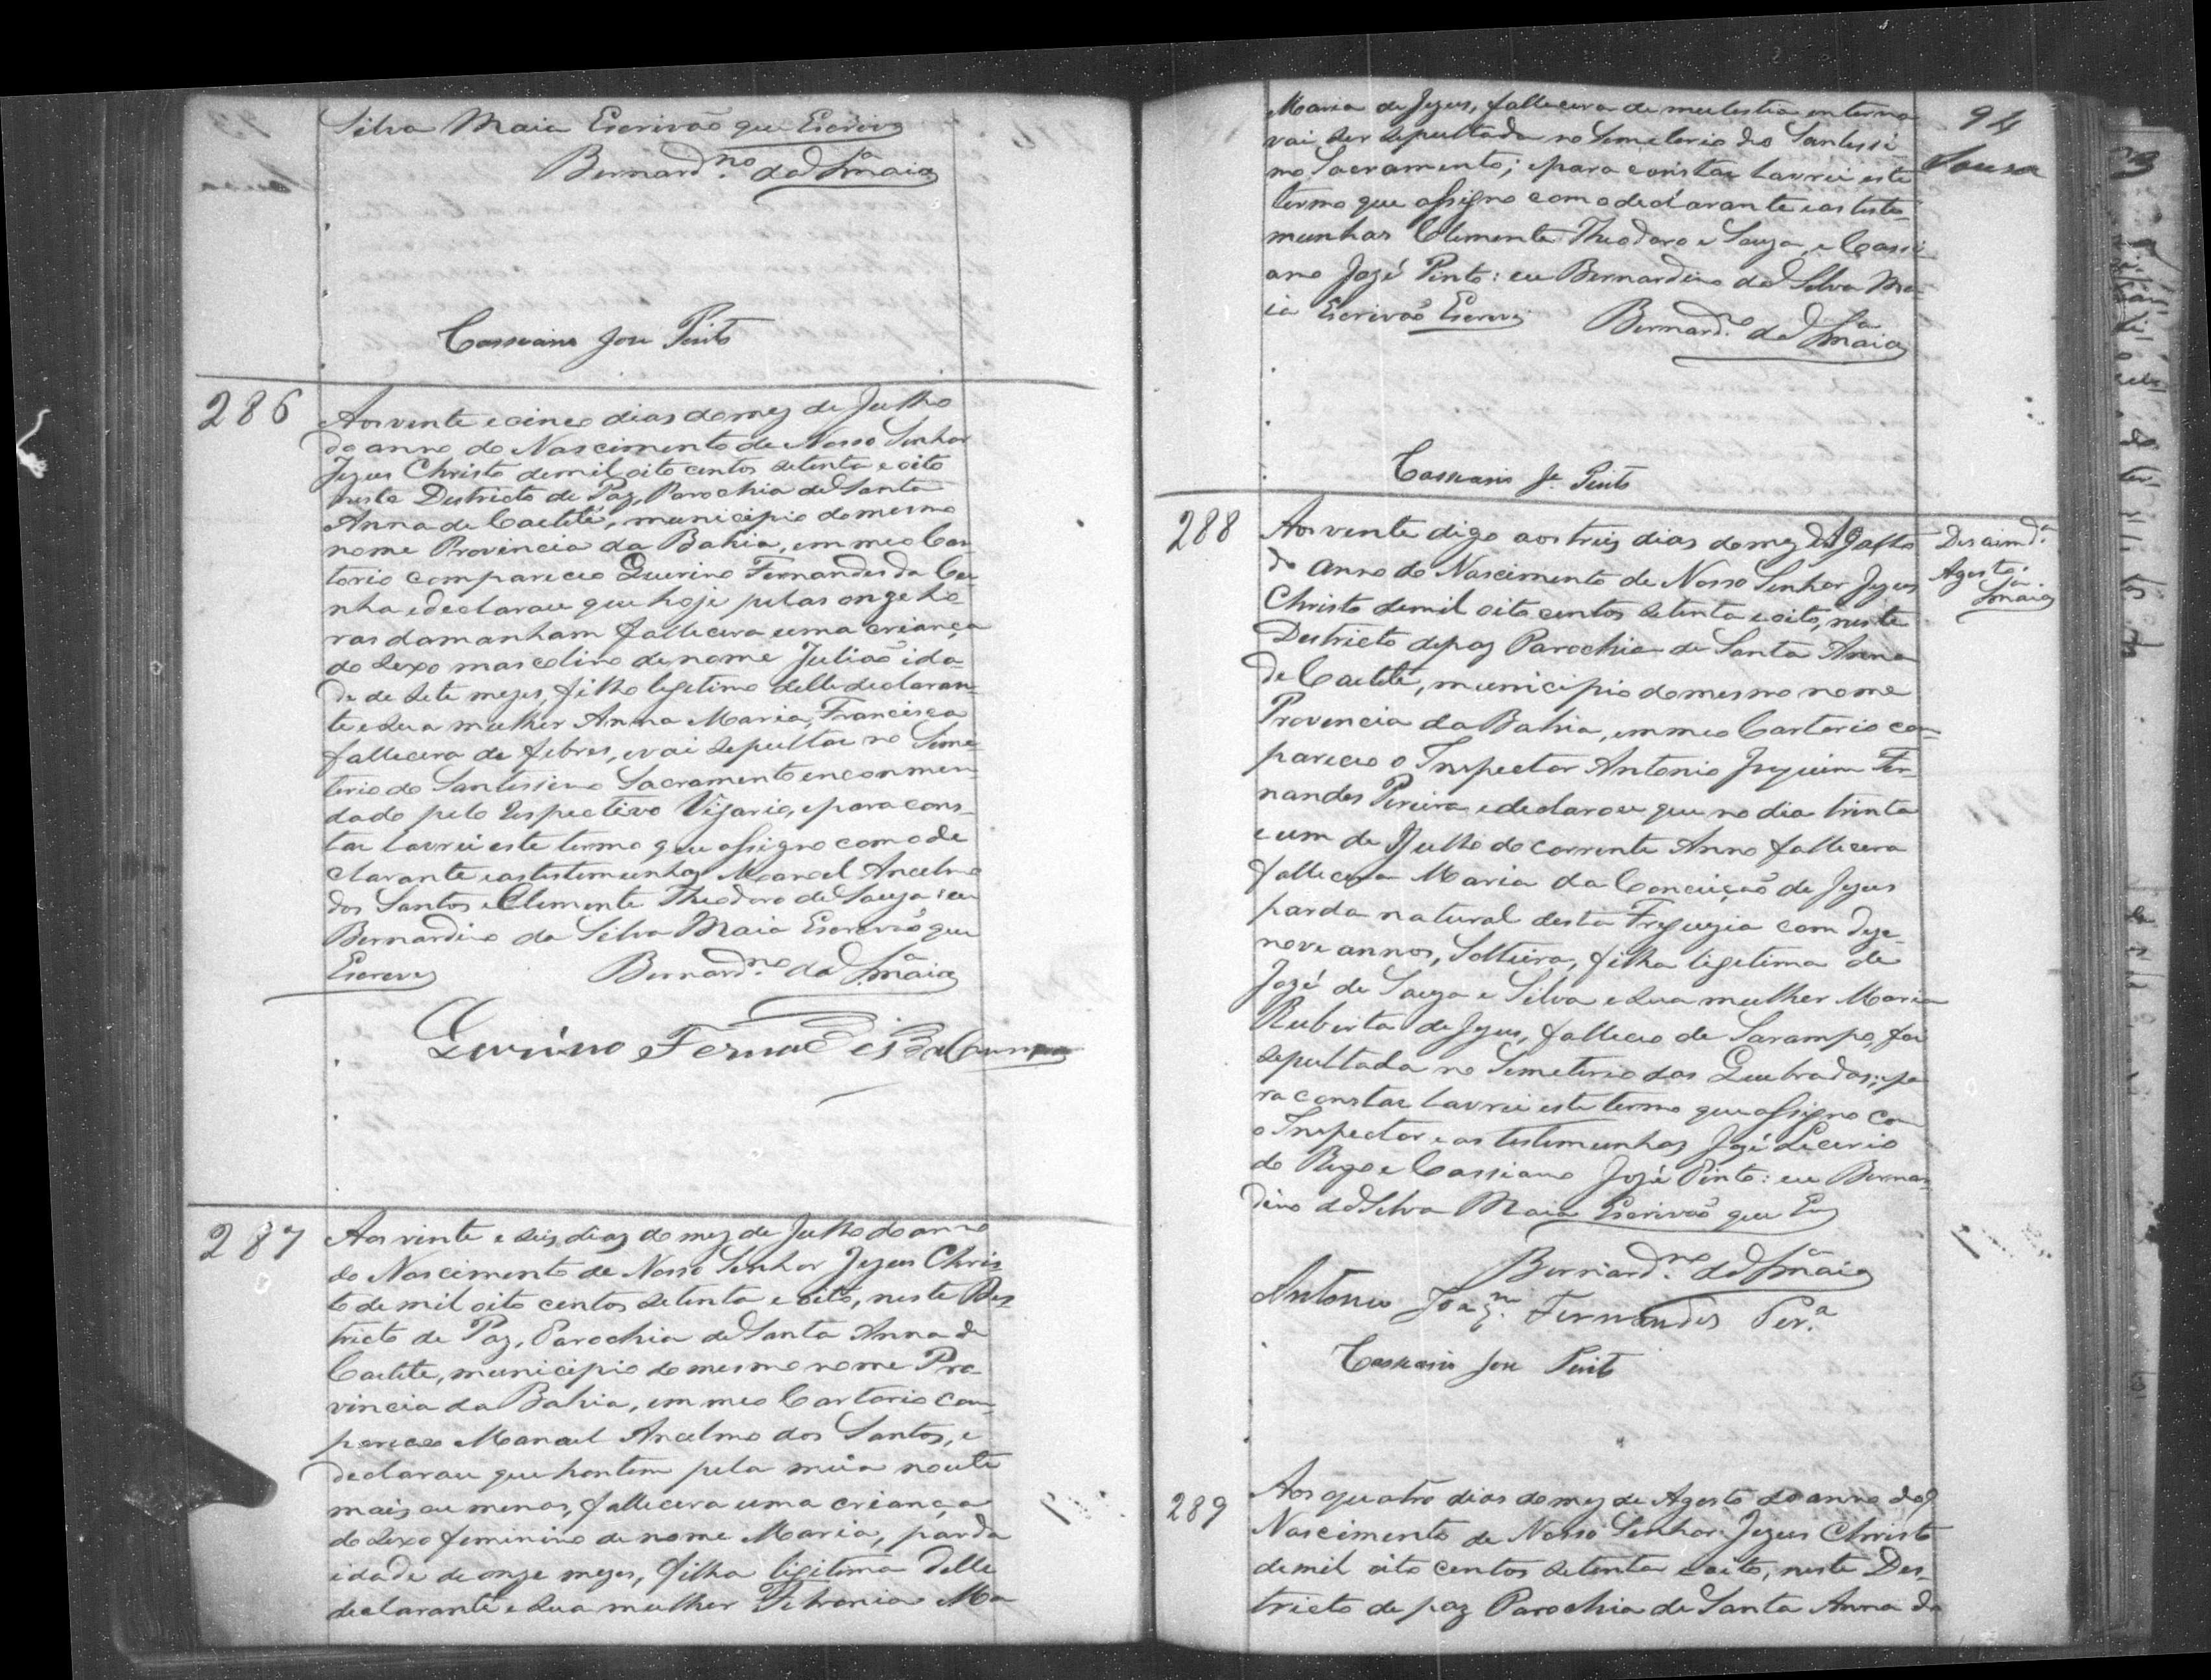 Silva Maia Escrivão que Escrivy
Bernard.no da S.a Maia
Cassiano Jose Pinto
286
Aos vente e cinco dias do mez de Julho
do anno do Nascimento de Nosso Senhor
Jezus Christo de mil oito centos setenta e oito
neste Destricto de Paz, Parochia de Santa
Anna de Caetité, municipio do mesmo
nome Provincia da Bahia, em meo Car-
torio compareceo Querino Fernandes da Cu-
nha e declarou que hoje pelas onze ho-
ras da manham fallecera uma criança
do sexo mascolino de nome Julião ida-
de de sete mezes, filho legetimo delle declaran-
te e sua mulher Anna Maria Francisca
fallecera de febres, e vai sepultar no Seme-
terio do Santessimo Sacramento enconmen-
dado pelo respectivo Vigario, e para cons-
tar lavrei este termo que assigno com o de
clarante e as testemunhas Manoel Ancelmo
dos Santos e Clemente Theodoro de Souza: eu
Bernardino da Silva Maia Escrivão que
Escrevy
Bernard.no da S.a Maia
Querino Fernades da Cunha
287
Aos vinte e seis dias do mez de Julho do anno
do Nascimento de Nosso Senhor Jezus Chris-
to de mil oito centos setenta e oito, neste Des-
tricto de Paz, Parochia de Santa Anna de
Caetite, municipio do mesmo nome Pro-
vincia da Bahia, em meo Cartorio com-
pareceo Manoel Ancelmo dos Santos, e
declarou que hontem pela meia noute
mais ou menos, fallecera uma criança
do sexo feminino de nome Maria, parda
idade de onze mezes, filha legitima delle
declarante e sua mulher Petronia Ma
94
Sousa
Maria de Jezus, fallecera de mulestia interna
vai ser sepultada no Semeterio do Santessi
mo Sacramento; e para constar lavrei este
termo que assigno com o declarante e as teste-
munhas Clemente Theodoro e Souza, e Cassi-
ano Jozé Pinto: eu Bernardino da Silva Ma-
ia Escrivão Escrevi
Bernard.o da S.a Maia
Cassiano Je. Pinto
288
Aos vente digo aos treis dias do mez de Agosto
do anno do Nascimento de Nosso Senhor Jezus
Christo de mil oito centos setenta e oito, neste
Destricto de paz Parochia de Santa Anna
de Caetité, municipio do mesmo nome
Provencia da Bahia, em meo Cartorio com-
pareceo o Inspector Antonio Joaquim Fer-
nandes Pereira e declarou que no dia trinta
e um de Julho do corrente Anno fallecera
fallecera Maria da Conceição de Jezus
parda natural desta Freguezia com deze-
nove annos, Solteira, filha legetima de
Jozé de Souza e Silva e sua mulher Maria
Ruberta de Jezus, falleceo de Sarampo, foi
sepultada no Semeterio das Quebradas; e pa
ra constar lavrei este termo que assigno com
o Inspector e as testemunhas Jozé Lecerio
do Rego e Cassiano Jozé Pinto: eu Bernar-
dino da Silva Maia Escrivão que
Bernard.no da S.a Maia
Antonio Joaq.m Fernandes Per.a
Cassiano Jose Pinto
Agosto
S.a Maia
289
Aos quatro dias do mez de Agosto do anno do
Nascimento de Nosso Senhor Jezus Christo
de mil oito centos setenta e oito, neste Des-
tricto de paz Parochia de Santa Anna de